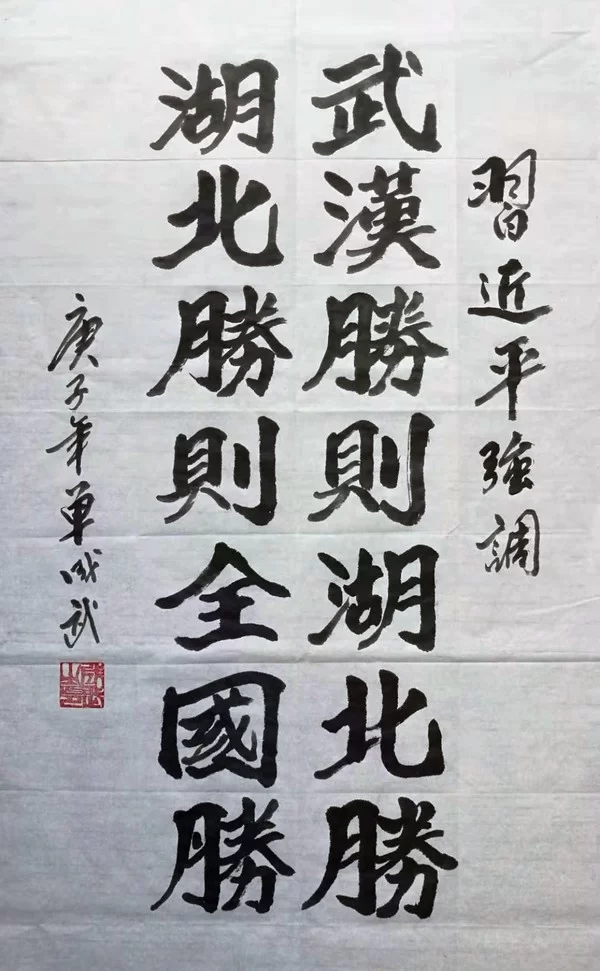 習近平強調
武漢勝則湖北勝
湖北勝則全國勝
庚子年單成武